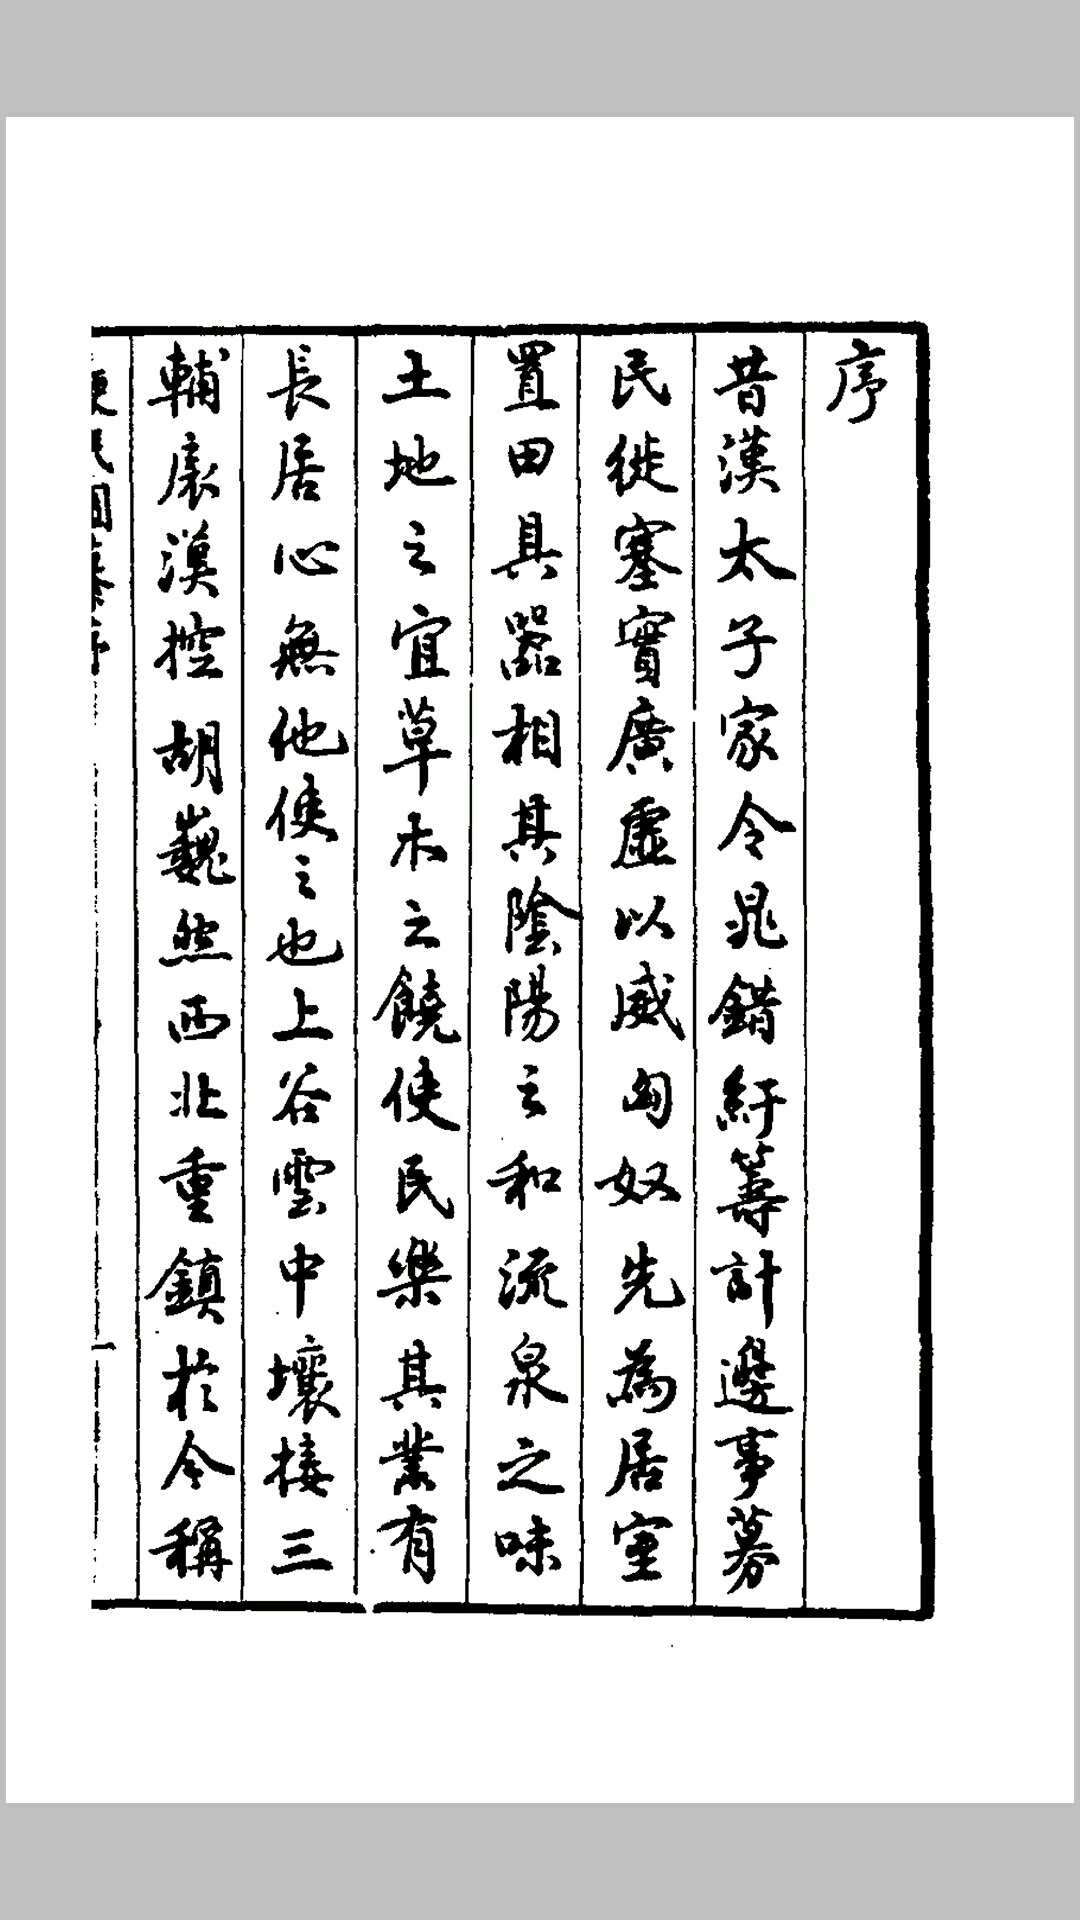 序
昔漢太子家令鼂錯紆籌計邊事募
民徙塞實廣虛以威匈奴先為居室
置田具器相其陰陽之和流泉之味
土地之宜草木之饒使民樂其業有
長居心無他使之也上谷雲中壤接三
輔扆漢控胡巍然西北重鎮於今稱